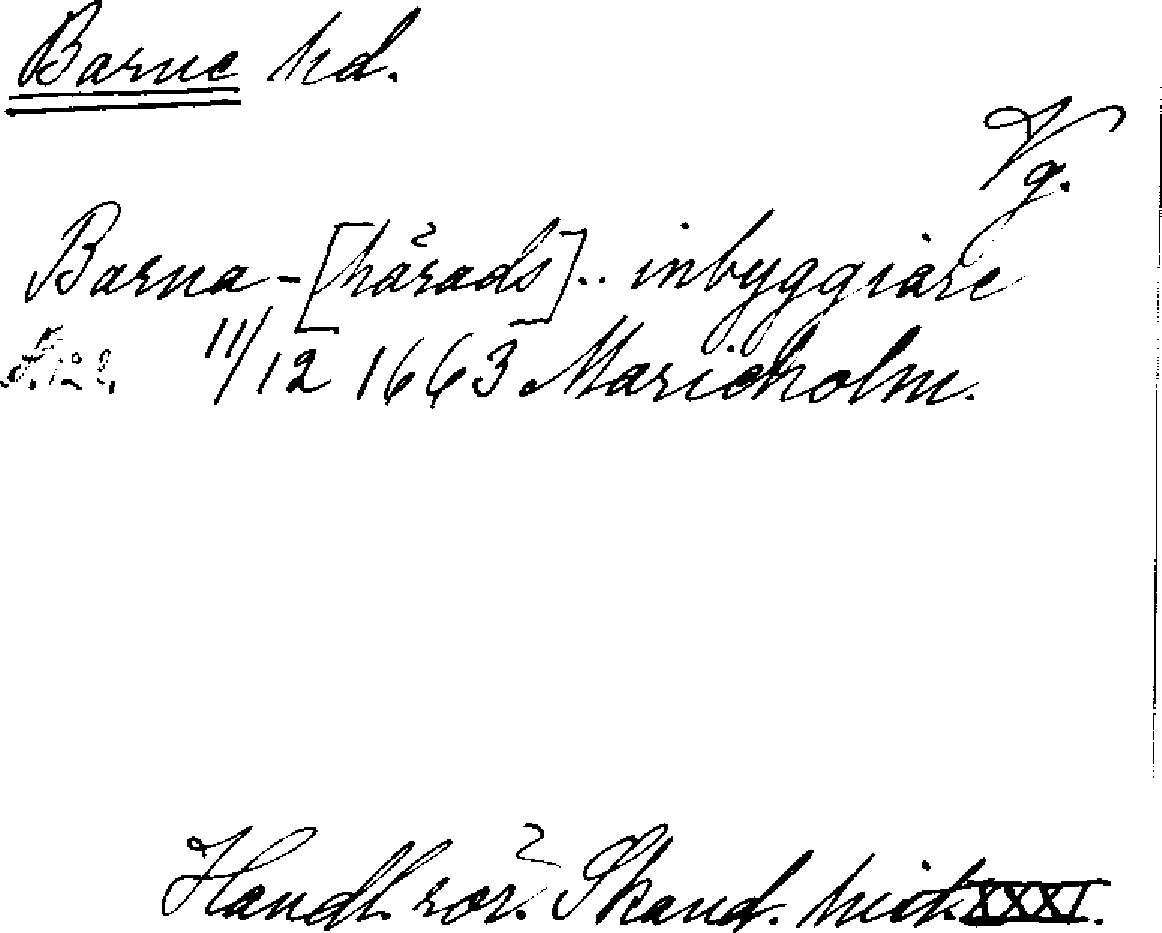 Barne hd.
Vg.
Barna-[härads].. inbyggiare
S. 122. 11/12 1663 Marieholm.
Handl. rör. Skand. hist. XXXI.